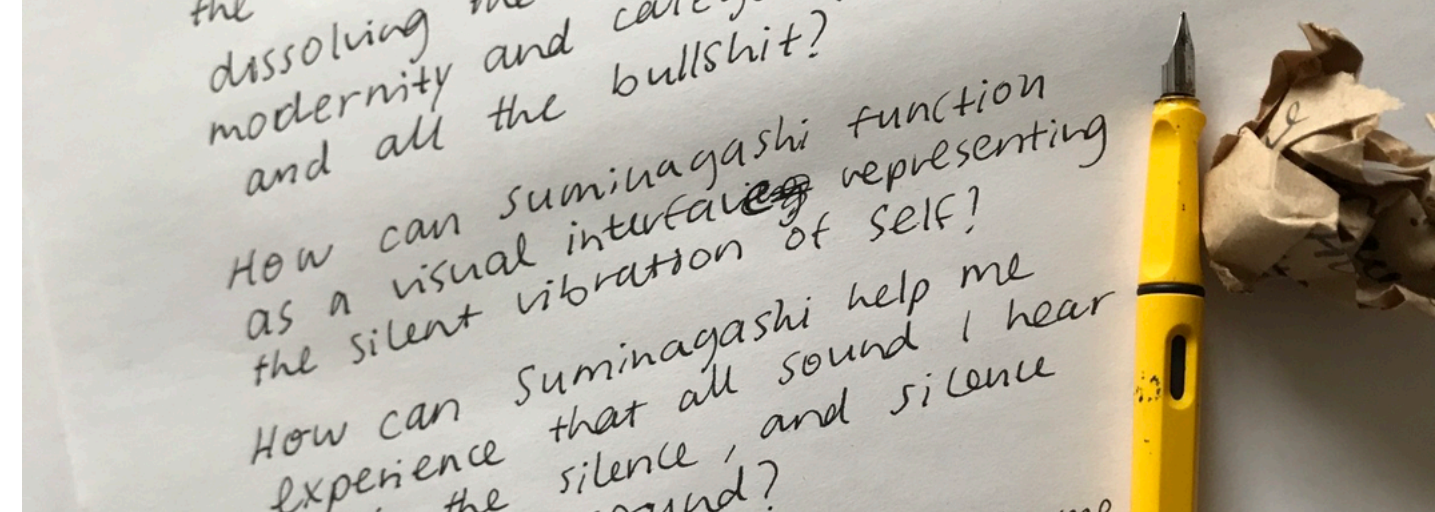 the
dissolving the
modernity and
and all the bullshit?
How can suminagashi function
as a visual interface representing
the silent vibration of self?
How can Suminagashi help me
experience that all sound I hear
the silence, and silence
sound?
me